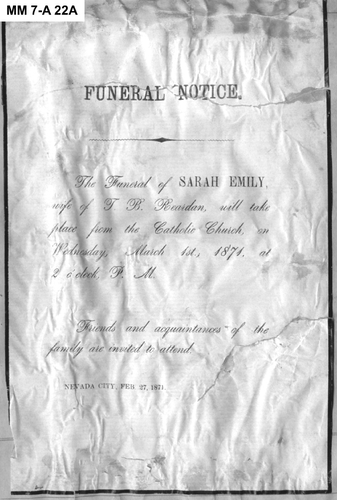 MM 7-A 22A
FUNERAL NOTICE.
The Funeral of SARAH EMILY,
wife of T. B. Reardan, will take
place from the Catholic Church, on
Wednesday, March 1st, 1871, at
2 o'clock, P. M.
Friends and acquaintances of the
family are invited to attend.
NEVADA CITY, FEB 27, 1871.